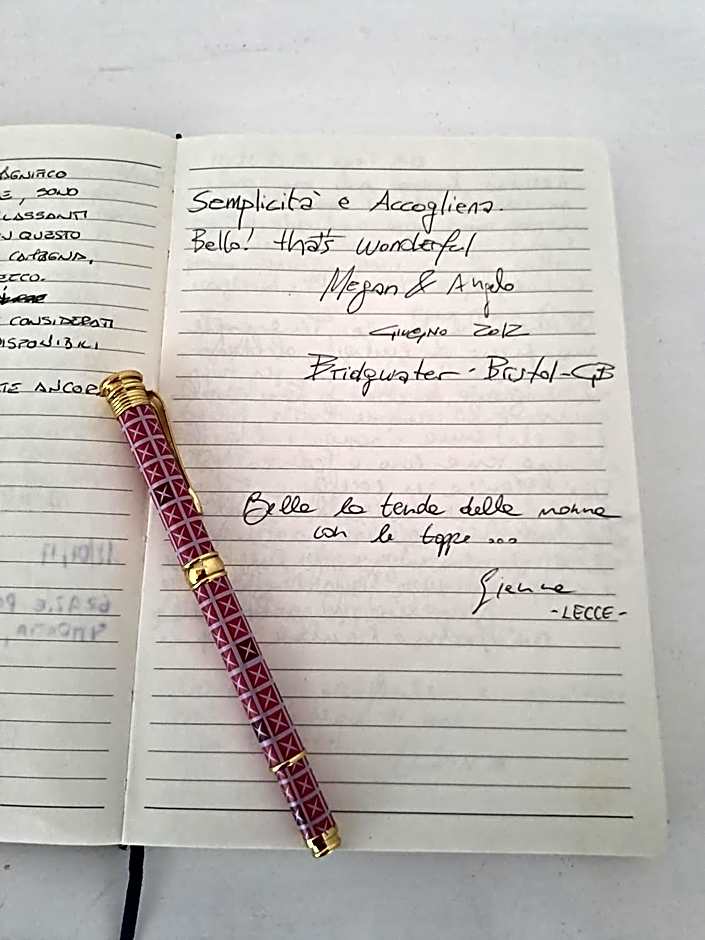 AGNIFICO
E, SONO
LASSANTI
QUESTO
CAMPAGNA,
ECCO.
CONSIDERATI
DISPONIBILI
TE ANCOR
Semplicità e Accoglienza.
Bello! that's wonderful
Megan & Angelo
GIUGNO 2012
Bridgwater - Bristol - GB
Belle le tende della nonna
con le toppe ...
- LECCE -